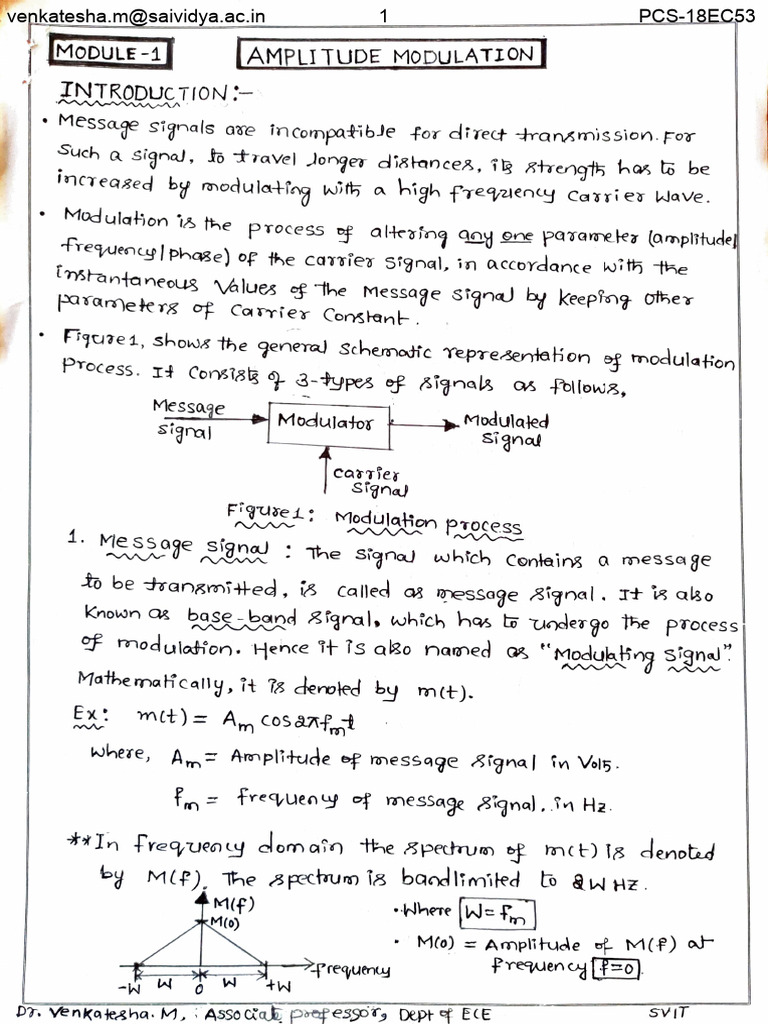 venkatesha.m@saividya.ac.in 1 PCS-18EC53
MODULE-1 AMPLITUDE MODULATION
INTRODUCTION:-
• Message signals are incompatible for direct transmission. For
such a signal, to travel longer distances, its strength has to be
increased by modulating with a high frequency carrier wave.
• Modulation is the process of altering any one parameter (amplitude/
frequency/phase) of the carrier signal, in accordance with the
instantaneous values of the message signal by keeping other
parameters of carrier constant.
• Figure1, shows the general schematic representation of modulation
process. It consists of 3-types of signals as follows,
Message
signal
Modulator
Modulated
signal
carrier
signal
Figure1: Modulation process
1. Message signal : The signal which contains a message
to be transmitted, is called as message signal. It is also
known as base-band signal, which has to undergo the process
of modulation. Hence it is also named as "Modulating signal".
Mathematically, it is denoted by m(t).
Ex: m(t) = Am cos2πfmt
where, Am = Amplitude of message signal in Vols.
fm = frequency of message signal, in Hz.
**In frequency domain the spectrum of m(t) is denoted
by M(f). The spectrum is bandlimited to ±W Hz.
M(f)
M(0)
frequency
-W W 0 W +W
• Where W=fm
• M(0) = Amplitude of M(f) at
frequency f=0.
Dr. Venkatesha. M, : Associate professor, Dept of ECE SVIT